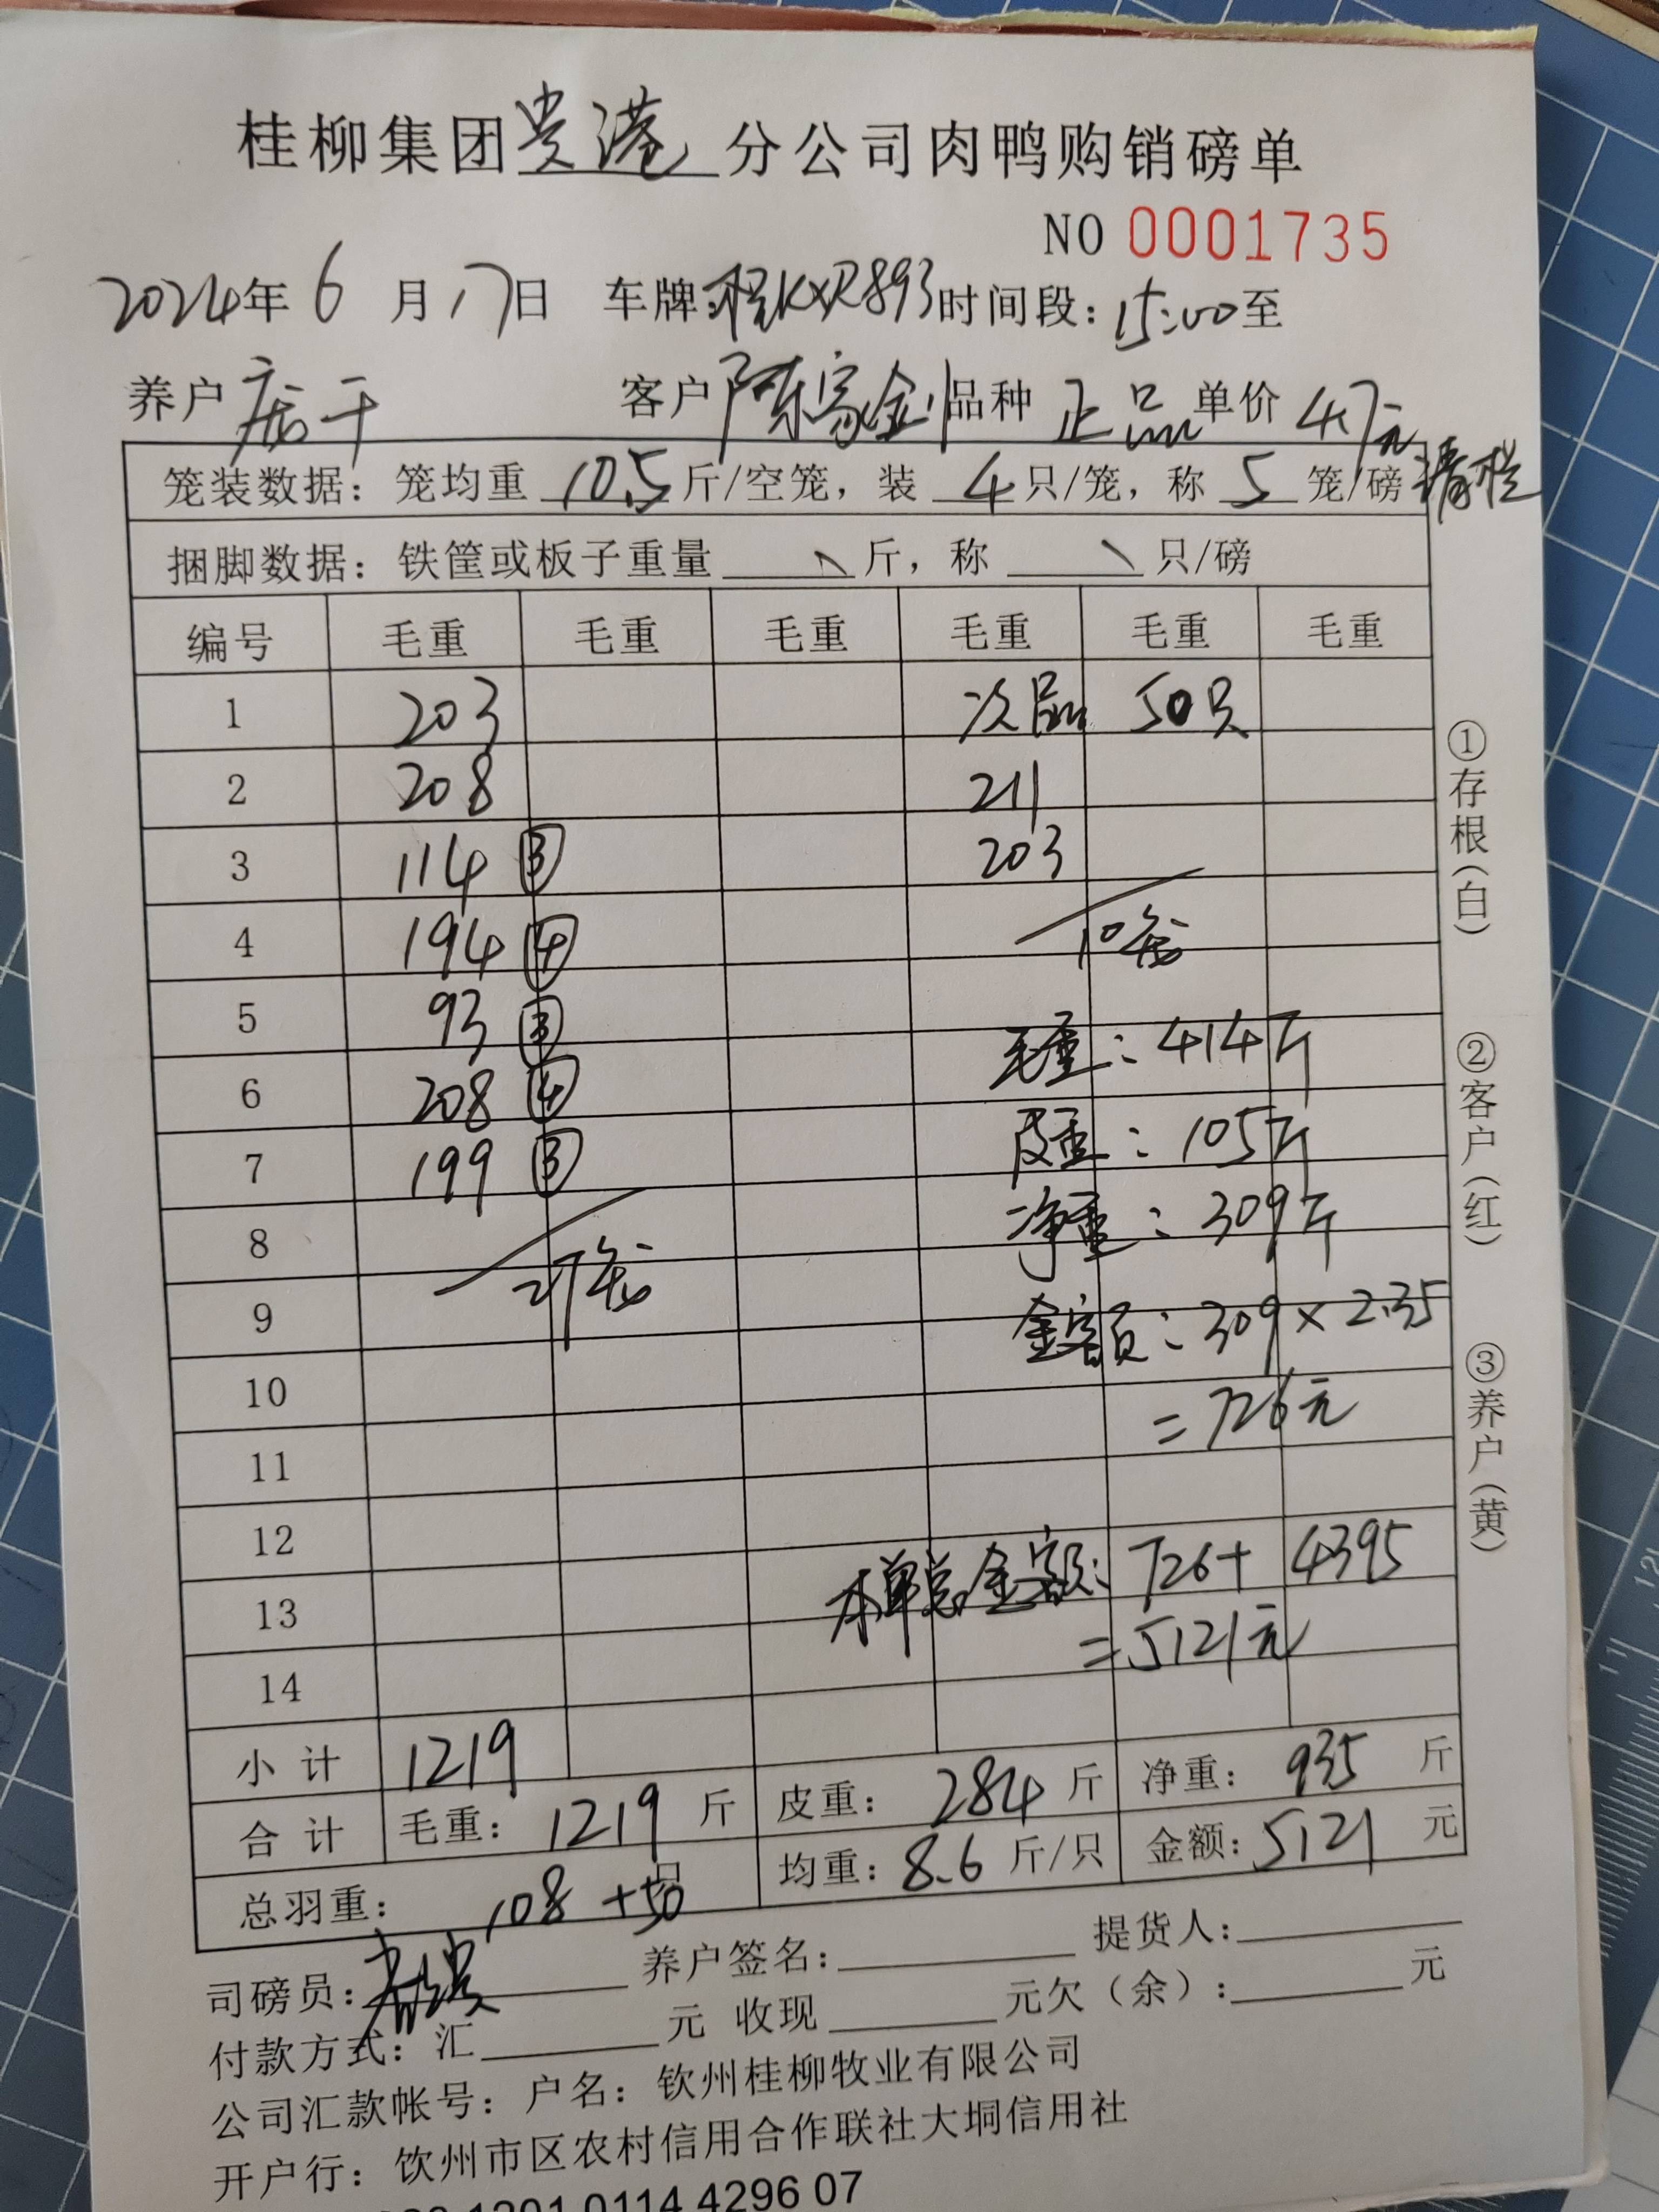 桂柳集团贵港分公司肉鸭购销磅单
NO 0001735
2024年6月17日 车牌:桂KXR893 时间段:15:00至
养户 客户 陈家金 品种 正品 单价 4.7元
清栏
笼装数据:笼均重 10.5 斤/空笼,装 4 只/笼,称 5 笼/磅
捆脚数据:铁筐或板子重量 \ 斤,称 \ 只/磅
编号 毛重 毛重 毛重 毛重 毛重 毛重
1 203 次品 50只
2 208 211
3 114 ③ 203
4 194 ④ 10笼
5 93 ③ 毛重:414斤
6 208 ④ 皮重:105斤
7 199 ③ 净重:309斤
8 27笼
9 金额:309×2.35
10 =726元
11
12 本单总金额:726+4395
13 =5121元
14
小计 1219
合计 毛重:1219斤 皮重:284斤 净重:935斤
总羽重:108+50只 均重:8.6斤/只 金额:5121元
司磅员: 养户签名: 提货人:
付款方式:汇 元 收现 元欠(余): 元
公司汇款帐号:户名:钦州桂柳牧业有限公司
开户行:钦州市区农村信用合作联社大垌信用社
1201 0114 4296 07
①存根(白)
②客户(红)
③养户(黄)